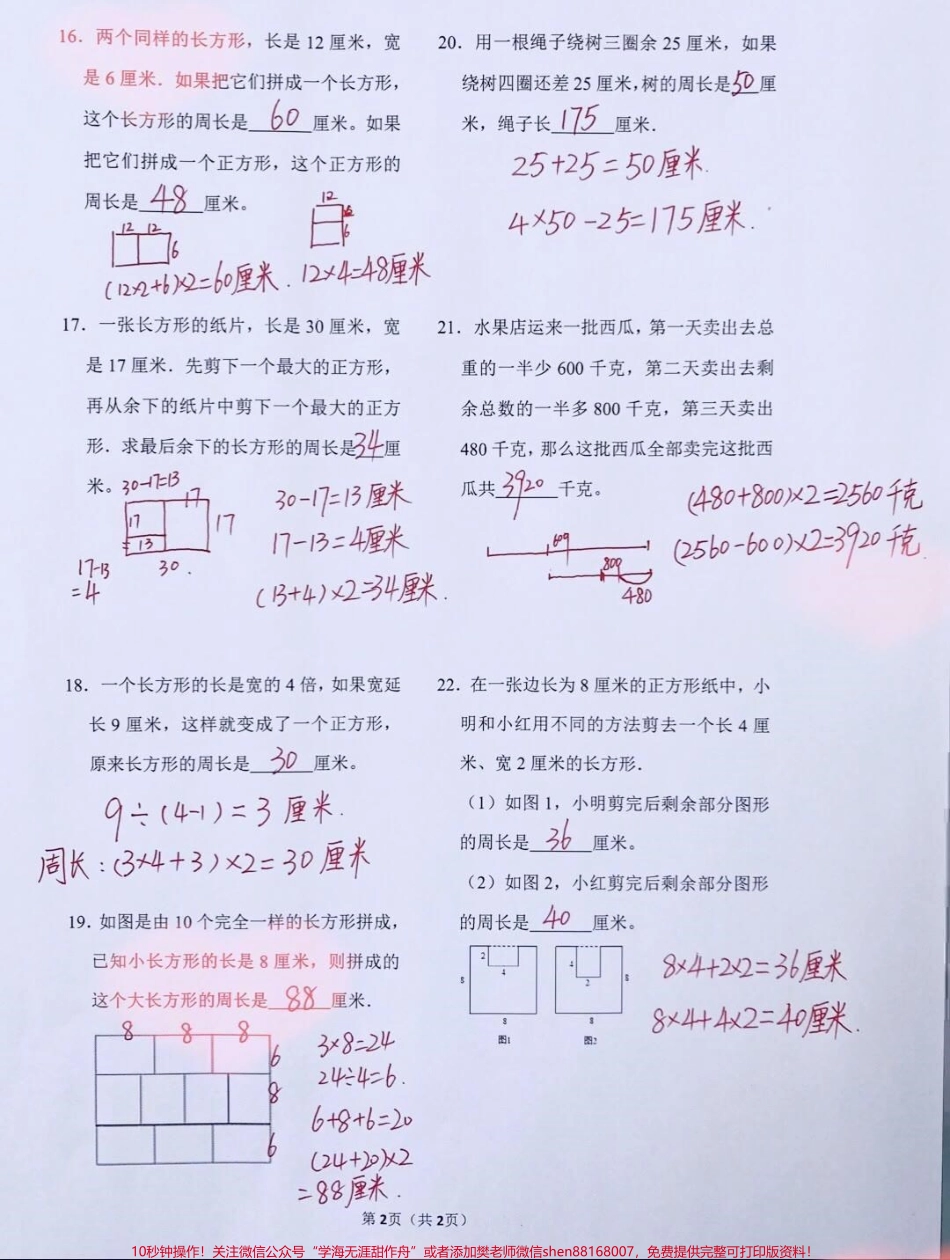 16．两个同样的长方形，长是 12 厘米，宽
是 6 厘米．如果把它们拼成一个长方形，
这个长方形的周长是 60 厘米。如果
把它们拼成一个正方形，这个正方形的
周长是 48 厘米。
12 12
6
12
6
(12×2+6)×2=60厘米．
12×4=48厘米
17．一张长方形的纸片，长是 30 厘米，宽
是 17 厘米．先剪下一个最大的正方形，
再从余下的纸片中剪下一个最大的正方
形．求最后余下的长方形的周长是34厘
米。
30-17=13
17
17
17
13
30．
17-13
=4
30-17=13厘米
17-13=4厘米
(13+4)×2=34厘米．
18．一个长方形的长是宽的 4 倍，如果宽延
长 9 厘米，这样就变成了一个正方形，
原来长方形的周长是 30 厘米。
9÷(4-1)=3 厘米．
周长：(3×4+3)×2=30厘米
19．如图是由 10 个完全一样的长方形拼成，
已知小长方形的长是 8 厘米，则拼成的
这个大长方形的周长是 88 厘米．
8 8 8
6
8
6
3×8=24
24÷4=6．
6+8+6=20
(24+20)×2
=88厘米．
20．用一根绳子绕树三圈余 25 厘米，如果
绕树四圈还差 25 厘米，树的周长是50厘
米，绳子长 175 厘米．
25+25=50厘米．
4×50-25=175厘米．
21．水果店运来一批西瓜，第一天卖出去总
重的一半少 600 千克，第二天卖出去剩
余总数的一半多 800 千克，第三天卖出
480 千克，那么这批西瓜全部卖完这批西
瓜共 3920 千克。
(480+800)×2=2560千克
(2560-600)×2=3920千克．
600
800
480
22．在一张边长为 8 厘米的正方形纸中，小
明和小红用不同的方法剪去一个长 4 厘
米、宽 2 厘米的长方形．
（1）如图 1，小明剪完后剩余部分图形
的周长是 36 厘米。
（2）如图 2，小红剪完后剩余部分图形
的周长是 40 厘米。
2
4
8
8
图1
4
2
8
8
图2
8×4+2×2=36厘米
8×4+4×2=40厘米．
第 2页（共 2页）
10秒钟操作！关注微信公众号“学海无涯甜作舟”或者添加樊老师微信shen88168007，免费提供完整可打印版资料！